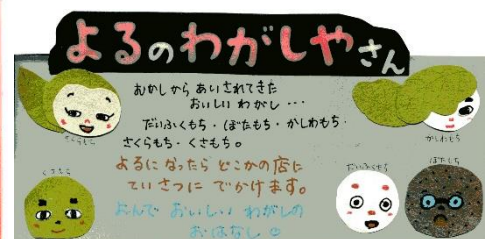 よるのわがしやさん
むかしから あいされてきた
おいしい わがし…
だいふくもち・ぼたもち・かしわもち・
さくらもち・くさもち。
よるになったら どこかの店に
ていさつに でかけます。
よんで おいしい わがしの
おはなし
さくらもち
かしわもち
くさもち
だいふくもち
ぼたもち